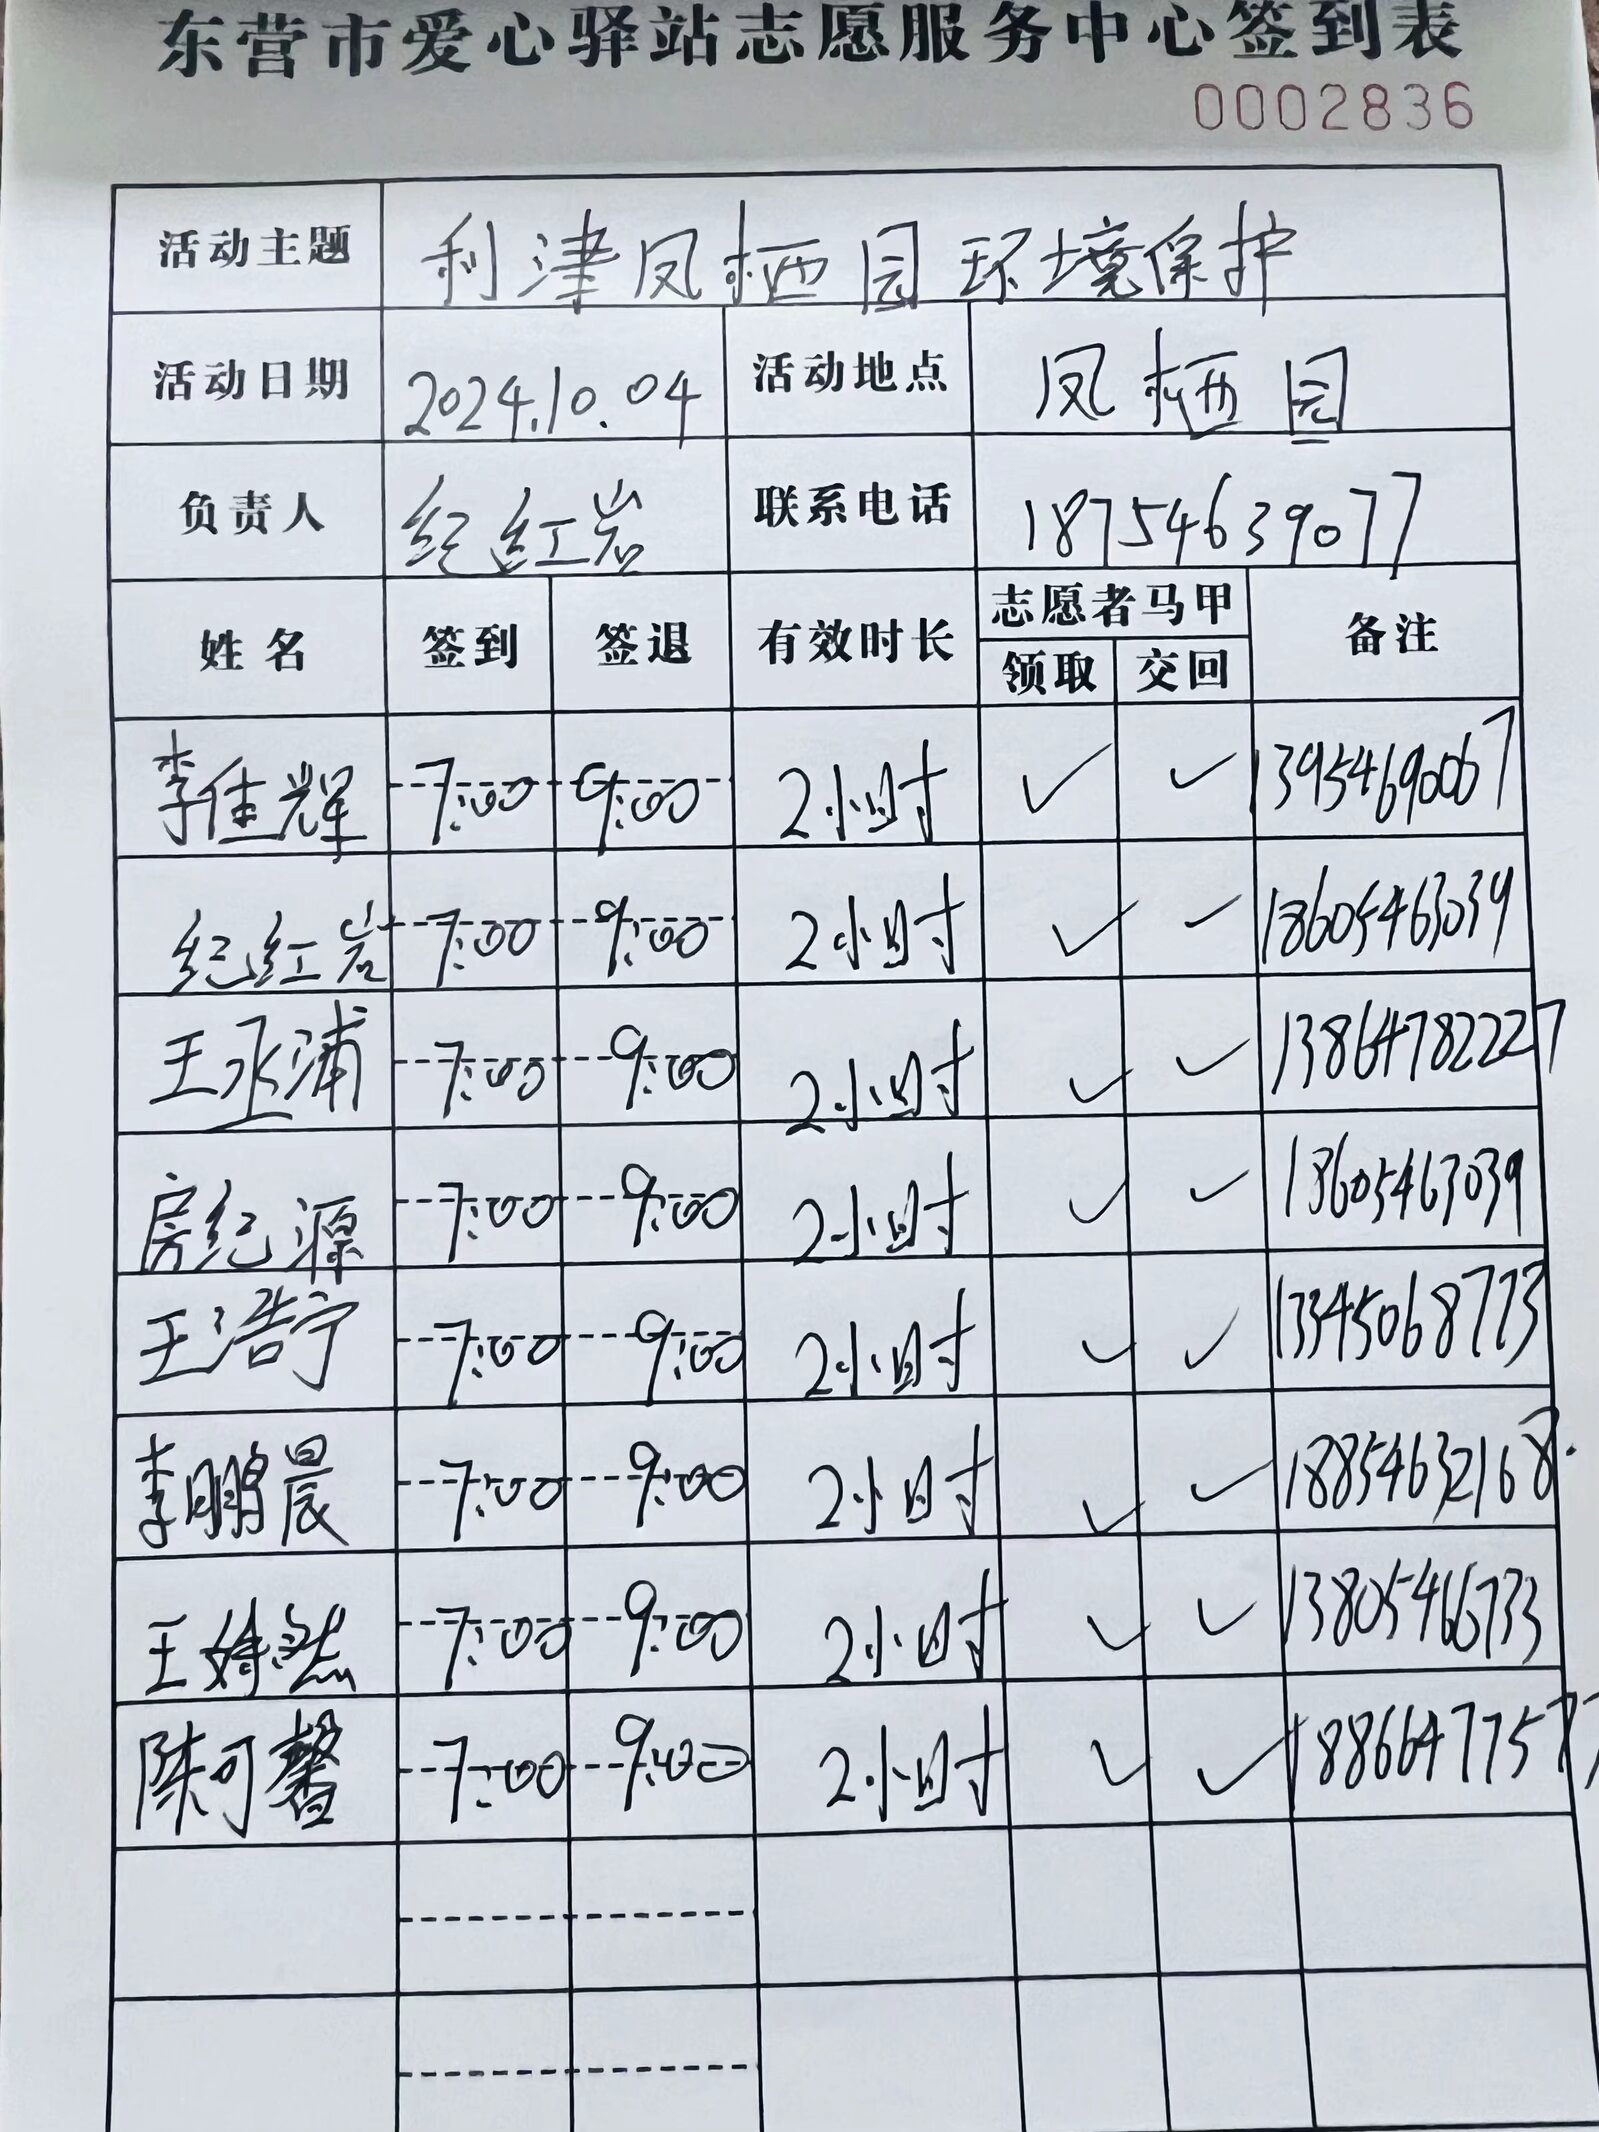 东营市爱心驿站志愿服务中心签到表
0002836
活动主题 利津凤栖园环境保护
活动日期 2024.10.04 活动地点 凤栖园
负责人 纪红岩 联系电话 18754639077
姓名 签到 签退 有效时长 志愿者马甲 备注
领取 交回
李佳辉 7:00 9:00 2小时 ✓ ✓ 13954690067
纪红岩 7:00 9:00 2小时 ✓ ✓ 18605463039
王丞浦 7:00 9:00 2小时 ✓ ✓ 13864782227
房纪源 7:00 9:00 2小时 ✓ ✓ 18605463039
王浩宁 7:00 9:00 2小时 ✓ ✓ 13345068773
李鹏晨 7:00 9:00 2小时 ✓ ✓ 18854632168.
王婍然 7:00 9:00 2小时 ✓ ✓ 13805466733
陈可馨 7:00 9:00 2小时 ✓ ✓ 18866477577